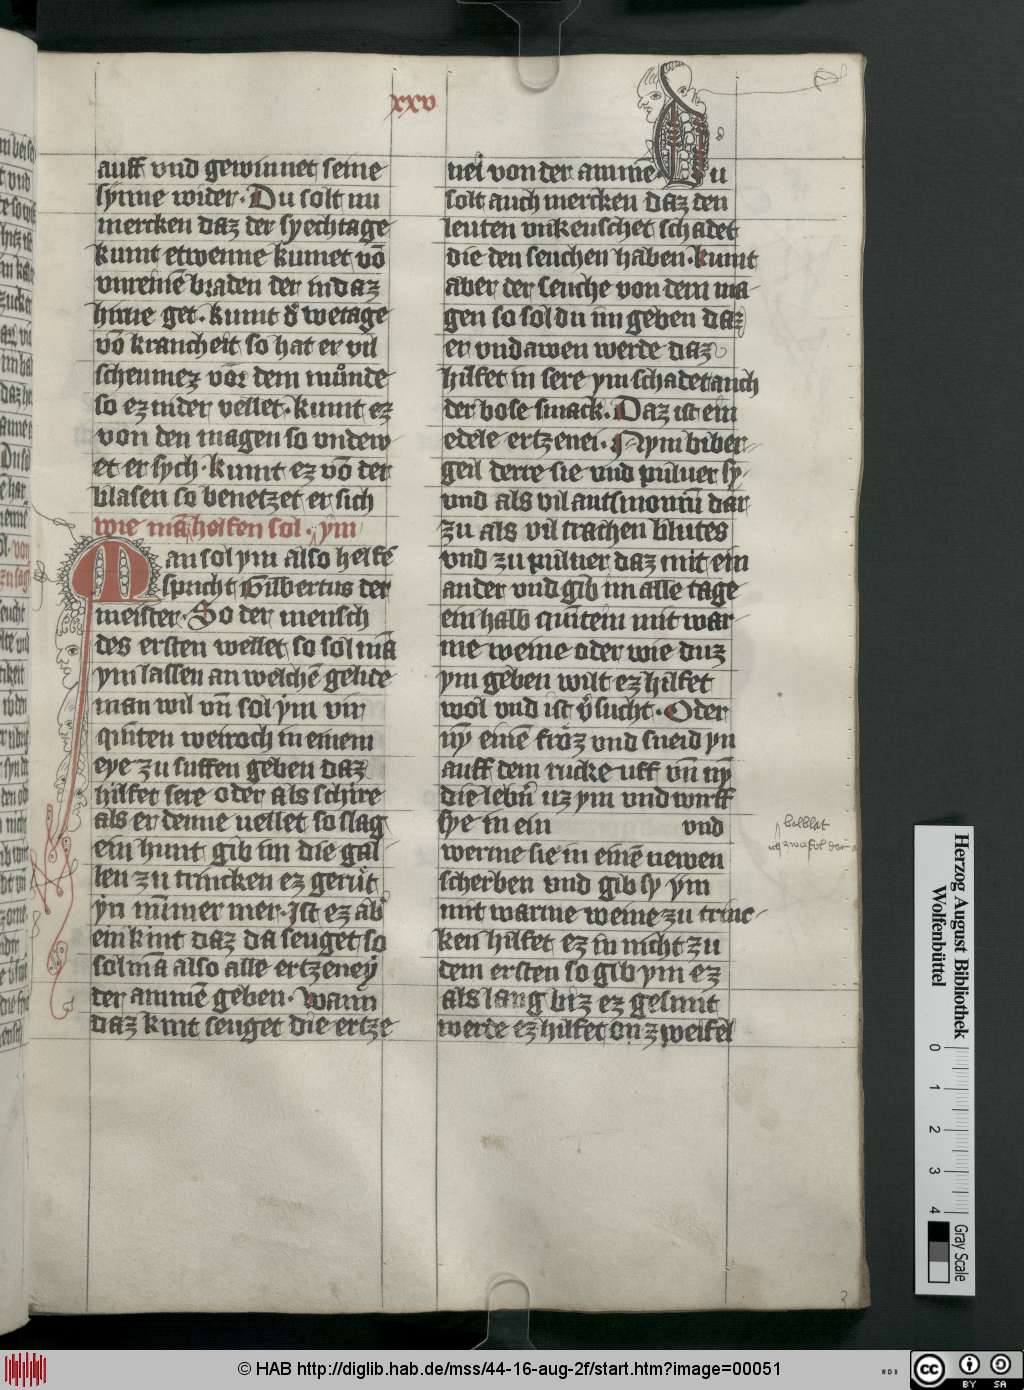 xxv
auff vnd gewinnet seine
synne wider. Du solt nu
mercken daz der syechtage
kumt etwenne kumet vō
vnreinē braden der in daz
hirne get. kumt d' wetage
vō krancheit so hat er vil
scheumez vor dem mūnde
so ez nider vellet. kumt ez
von den magen so vndew
et er sych. kumt ez vō der
blasen so benetzet er sich
wie mā helfen sol. ym
Man sol ym also helfē
spricht Gilbertus der
meister. So der mensch
des ersten wellet so sol mā
ym lassen an welchē gelide
man wil vn̄ sol ym vir
quinten weiroch in einem
eye zu suffen geben daz
hilfet sere oder als schire
als er denne vellet so slag
ein hunt gib im die gal
len zu trincken ez gerürt
yn nūmer mer. Ist ez ab'
ein kint daz da seuget so
sol mā also alle ertzeney
der ammē geben. Wann
daz kint seuget die ertze
nei von der ammē Du
solt auch mercken daz den
leuten vnkeuschet schadet
die den seuchen haben. kumt
aber der seuche von dem ma
gen so sol du im geben daz
er vndawen werde daz
hilfet in sere ym schadet auch
der bose smack. Daz ist ein
edele ertzenei. Nym biber
geil derre sie vnd puluer sy
vnd als vil antimonium dar
zu als vil trachen blutes
vnd zu puluer daz mit ein
ander vnd gib im alle tage
ein halb quintein mit war
me weine oder wie duz
ym geben wilt ez hilfet
wol vnd ist v'sucht. Oder
ny einē frosz vnd sneid yn
auff dem rucke uff vn̄ ny
die lebn̄ uz ym vnd wurff
sye in ein vnd
werme sie in einē newen
scherben vnd gib sy ym
mit warme weine zu trinc
ken hilfet ez in nicht zu
dem ersten so gib ym ez
als lang biz ez gesunt
werde ez hilfet on zweifel
Herzog August Bibliothek
Wolfenbüttel
0 1 2 3 4
Gray Scale
© HAB http://diglib.hab.de/mss/44-16-aug-2f/start.htm?image=00051
cc BY SA